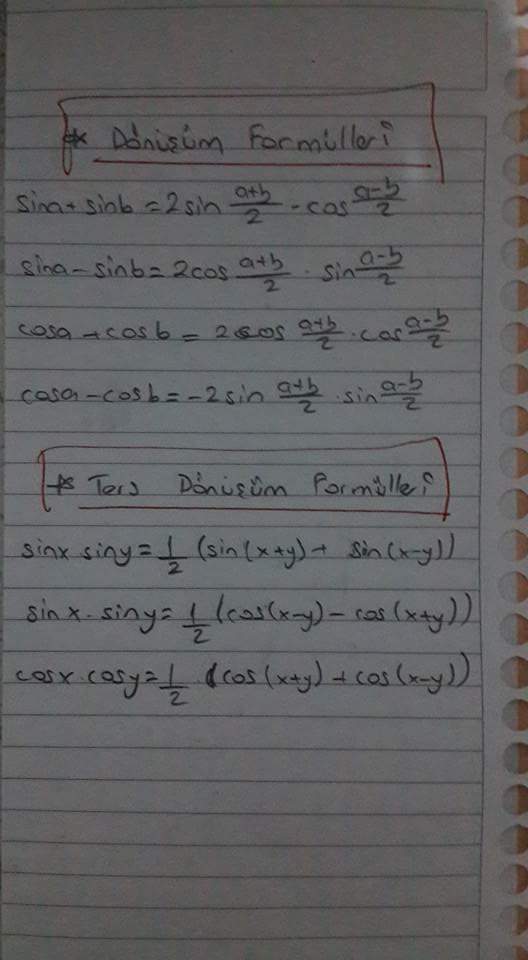 * Dönüşüm Formülleri
sina + sinb = 2sin (a+b)/2 · cos (a-b)/2
sina - sinb = 2cos (a+b)/2 · sin (a-b)/2
cosa + cosb = 2cos (a+b)/2 · cos (a-b)/2
cosa - cosb = -2sin (a+b)/2 · sin (a-b)/2
* Ters Dönüşüm Formülleri
sinx siny = 1/2 (sin(x+y) + sin(x-y))
sinx · siny = 1/2 (cos(x-y) - cos(x+y))
cosx · cosy = 1/2 (cos(x+y) + cos(x-y))